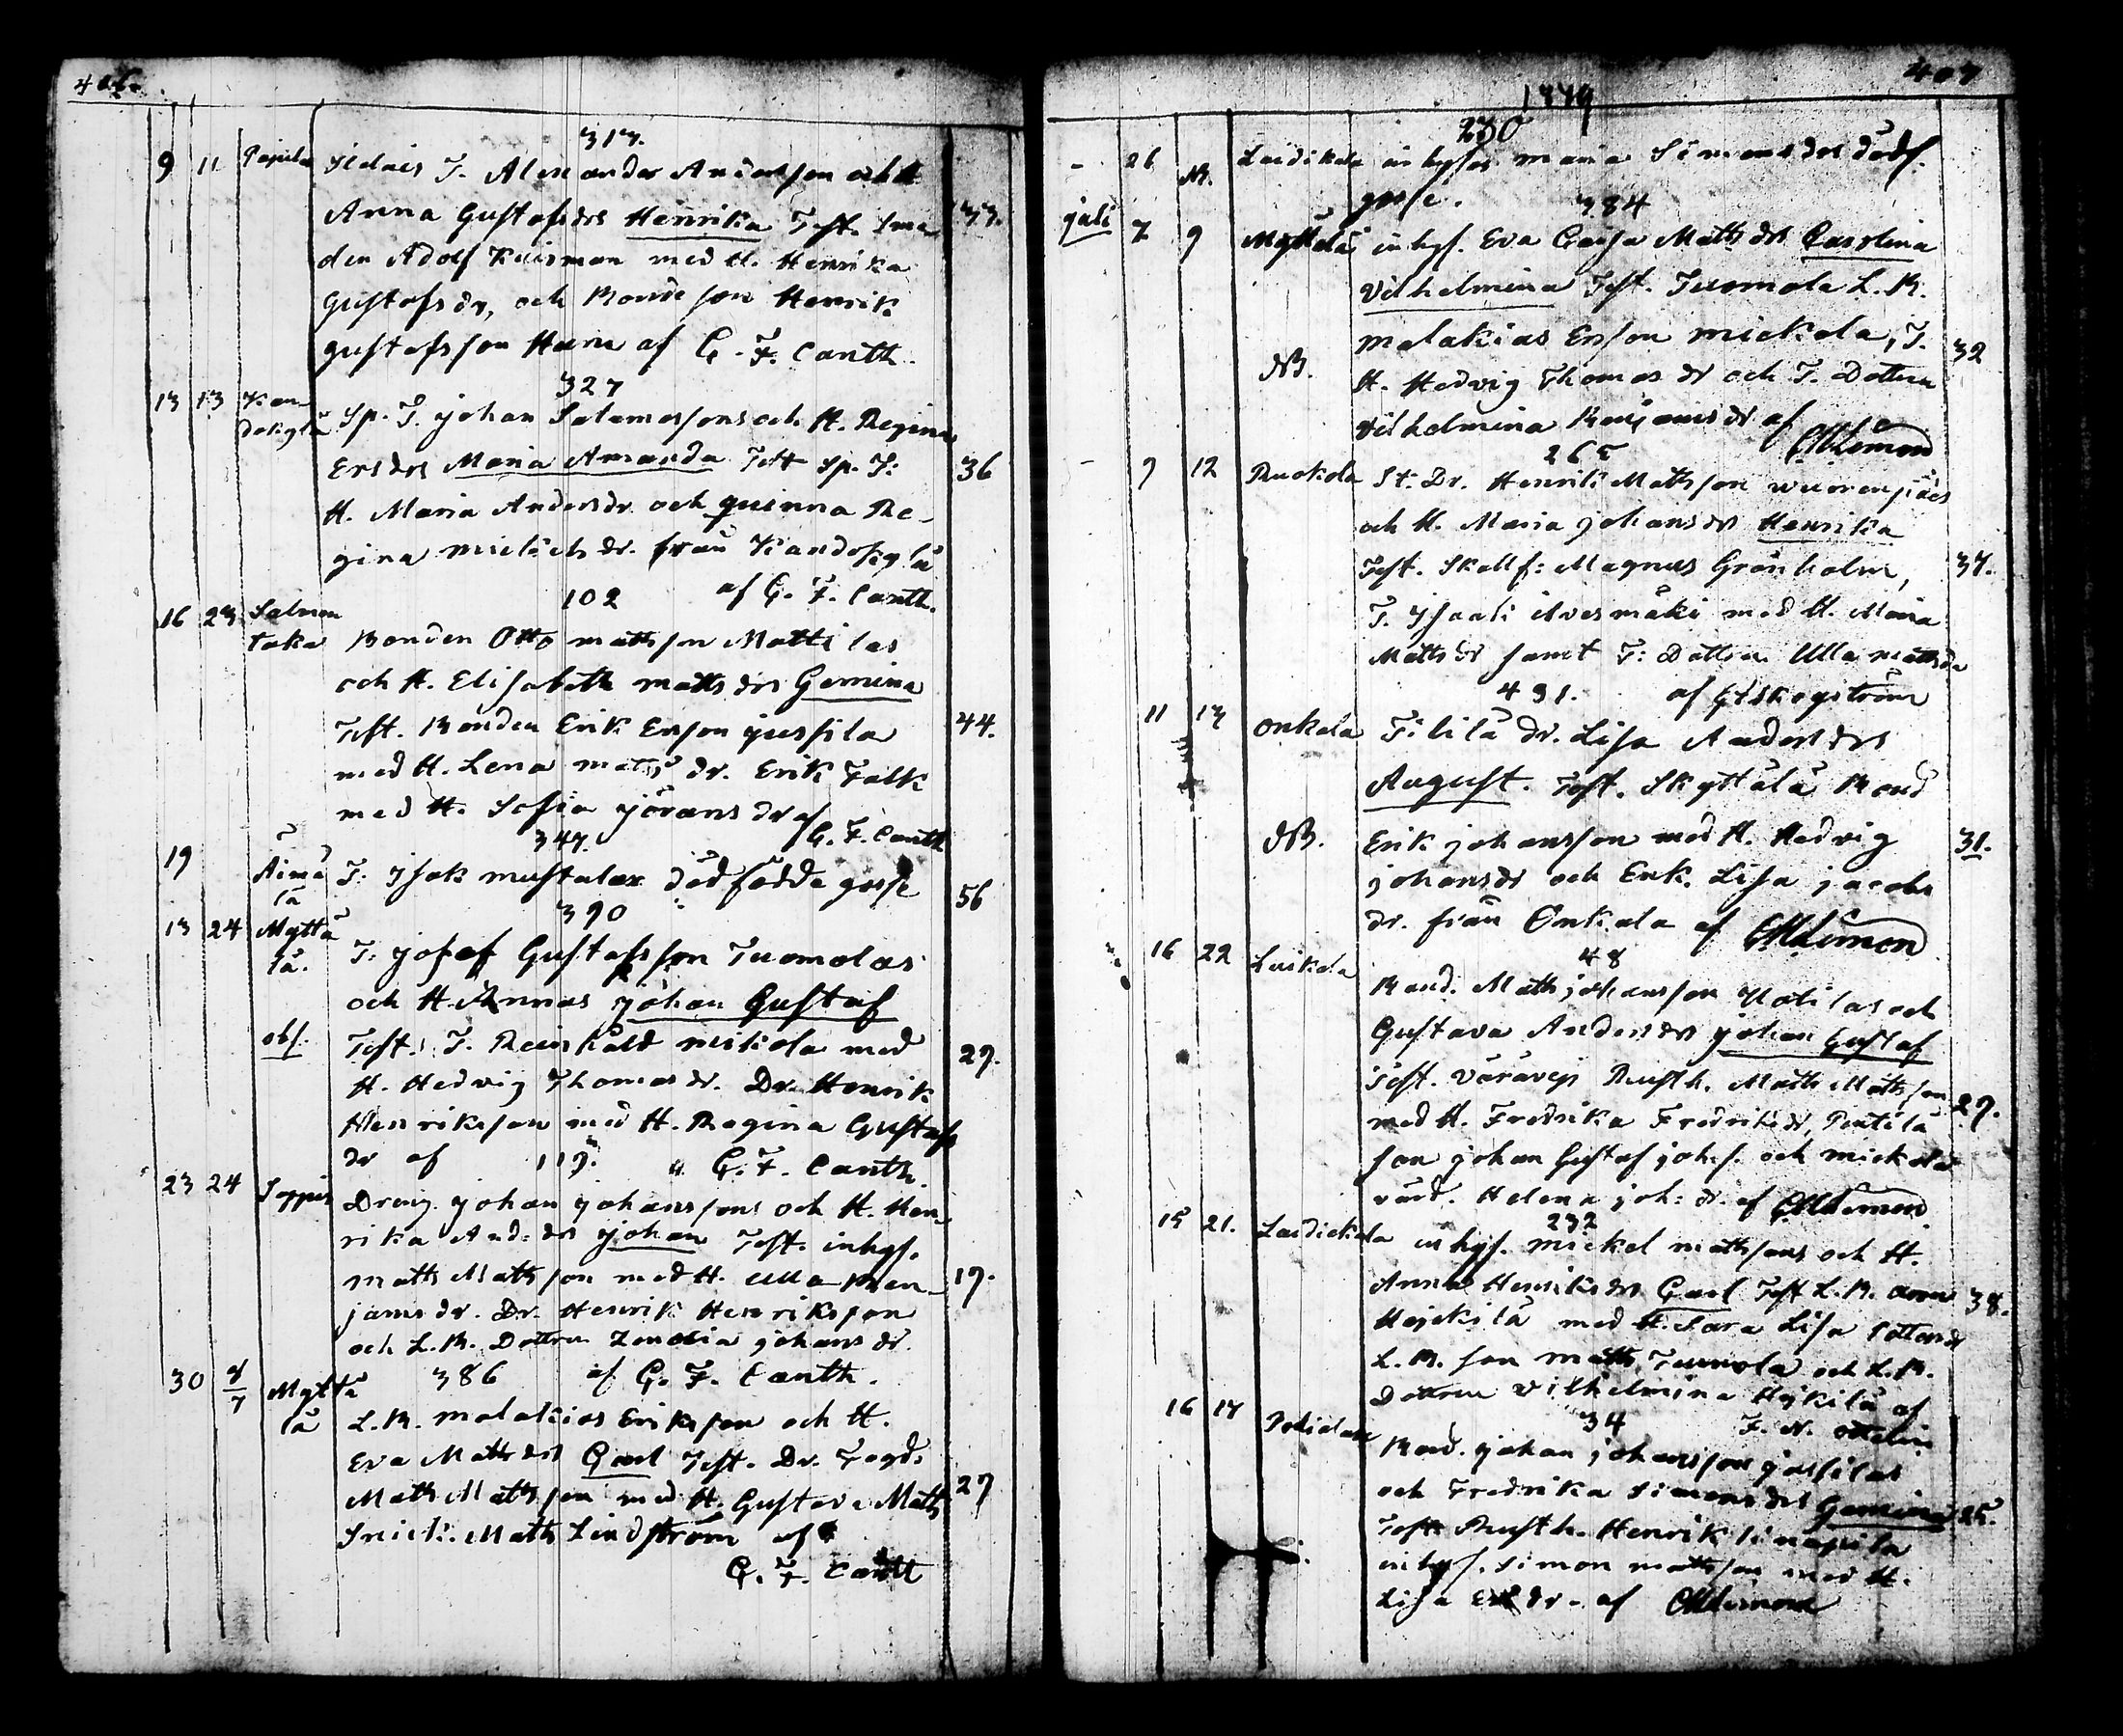 406.
317.
9 11 Papula Sldns T. Alexander Andersson och
Anna Gustafsdrs Henrika Test. Sme
den Adolf Kuisman med H. Henrika 33.
Gustafsdr, och Bondeson Henrik
Gustafsson af G. F. Canth.
327
13 13 Kan Sp. T. Johan Salomossons och H. Regina
dokylä
Ersdrs Maria Amanda Test Sp. T: 36
H. Maria Andersdr. och quinna Re-
gina Michelsdr. från Kandokylä
102 af G. F. Canth.
16 23 Salmen
taka Bonden Otto Mattsson Mattilas
och H. Elisabeth Matts drs Gemina
Test. Bonden Erik Ersson Jussila 44.
med H. Lena Matts dr. Erik Falk
med H. Sofia Jörans dr af
347. G. F. Canth
19 Äimä T: Isak Mustalax dödfödde gosse
lä 56
390
13 24 Myttä T: Josef Gustafsson Tuomolas
lä.
och H. Annas Johan Gustaf
obs. Test. T. Reinhåld Miskola med 29.
H. Hedvig Thomasdr. Dr. Henrik
Henriksson med H. Regina Gustafs
dr af 119. G. F. Canth.
23 24 Soppis Dreng Johan Johanssons och H. Hen-
rika And: drs Johan Test. inhys.
Matts Mattsson med H. Ulla Ben- 19.
jamsdr. Dr. Henrik Henriksson
och L. B. Dottren Zenobia Johans dr.
386 af G. F. Canth.
30 8/7 Myttä
lä L. B. Malakias Eriksson och H.
Eva Matts drs Carl Test. Dr. Fogd.
Matts Mattsson med H. Gustava Matts 27
Snick. Matts Lindström af
G. F. Canth
407
1849
230
- 26 N. Laidikala inhyses Maria Simons drs dödf.
gosse. 384
juli 7 9 Myttälä inhys. Eva Caisa Matts drs Carolina
Vilhelmina Test. Tuomola L. B.
Malakias Ersson Mickola, T. 32
NB. H. Hedvig Thomas dr och T. Dottren
Vilhelmina Benjamsdr af
265 Limon
- 9 12 Ruokola St: Dr. Henrik Mattsson
och H. Maria Johans drs Henrika
Test. Skallf: Magnus Grönholm, 37.
T. Isaak Alvesmäki med H. Maria
Matts dr samt T: Dottren Ulla Mattsdr
431. af Skogström
11 13 Onkala Tilitä dr. Lisa Anders drs
August. Test. Skyttälä Bond
NB. Erik Johansson med H. Hedvig 31.
Johansdr och Enk. Lisa Jacobs
dr. från Onkala af Limon
48
16 22 Luikala Bond. Matts Johansson och
Gustava Andersdrs Johan Gustaf
Test. Vāräveji Rusth. Matts Mattsson 29.
med H. Fredrika Fredriksdr, Pentilä
son Johan Gustaf Johs. och Mickola
värd. Helena Joh: dr. af Limon
232
15 21. Laidickala inhys. Mickel Mattssons och H.
Anna Henriksdrs Carl Test L. B. 38.
Hejckilä med H. Sara Lisa Ottosdr
L. B. son Matts Tuomola och L. B.
Dottren Vilhelmina Hejkilä af
34 F. N. Ottelin
16 17 Bond. Johan Johansson Jussilas
och Fredrika Simons drs Gemina 25.
Test Rusth. Henrik Sinapila
inhys. Simon Mattsson med H.
Lisa Er dr. af Limon